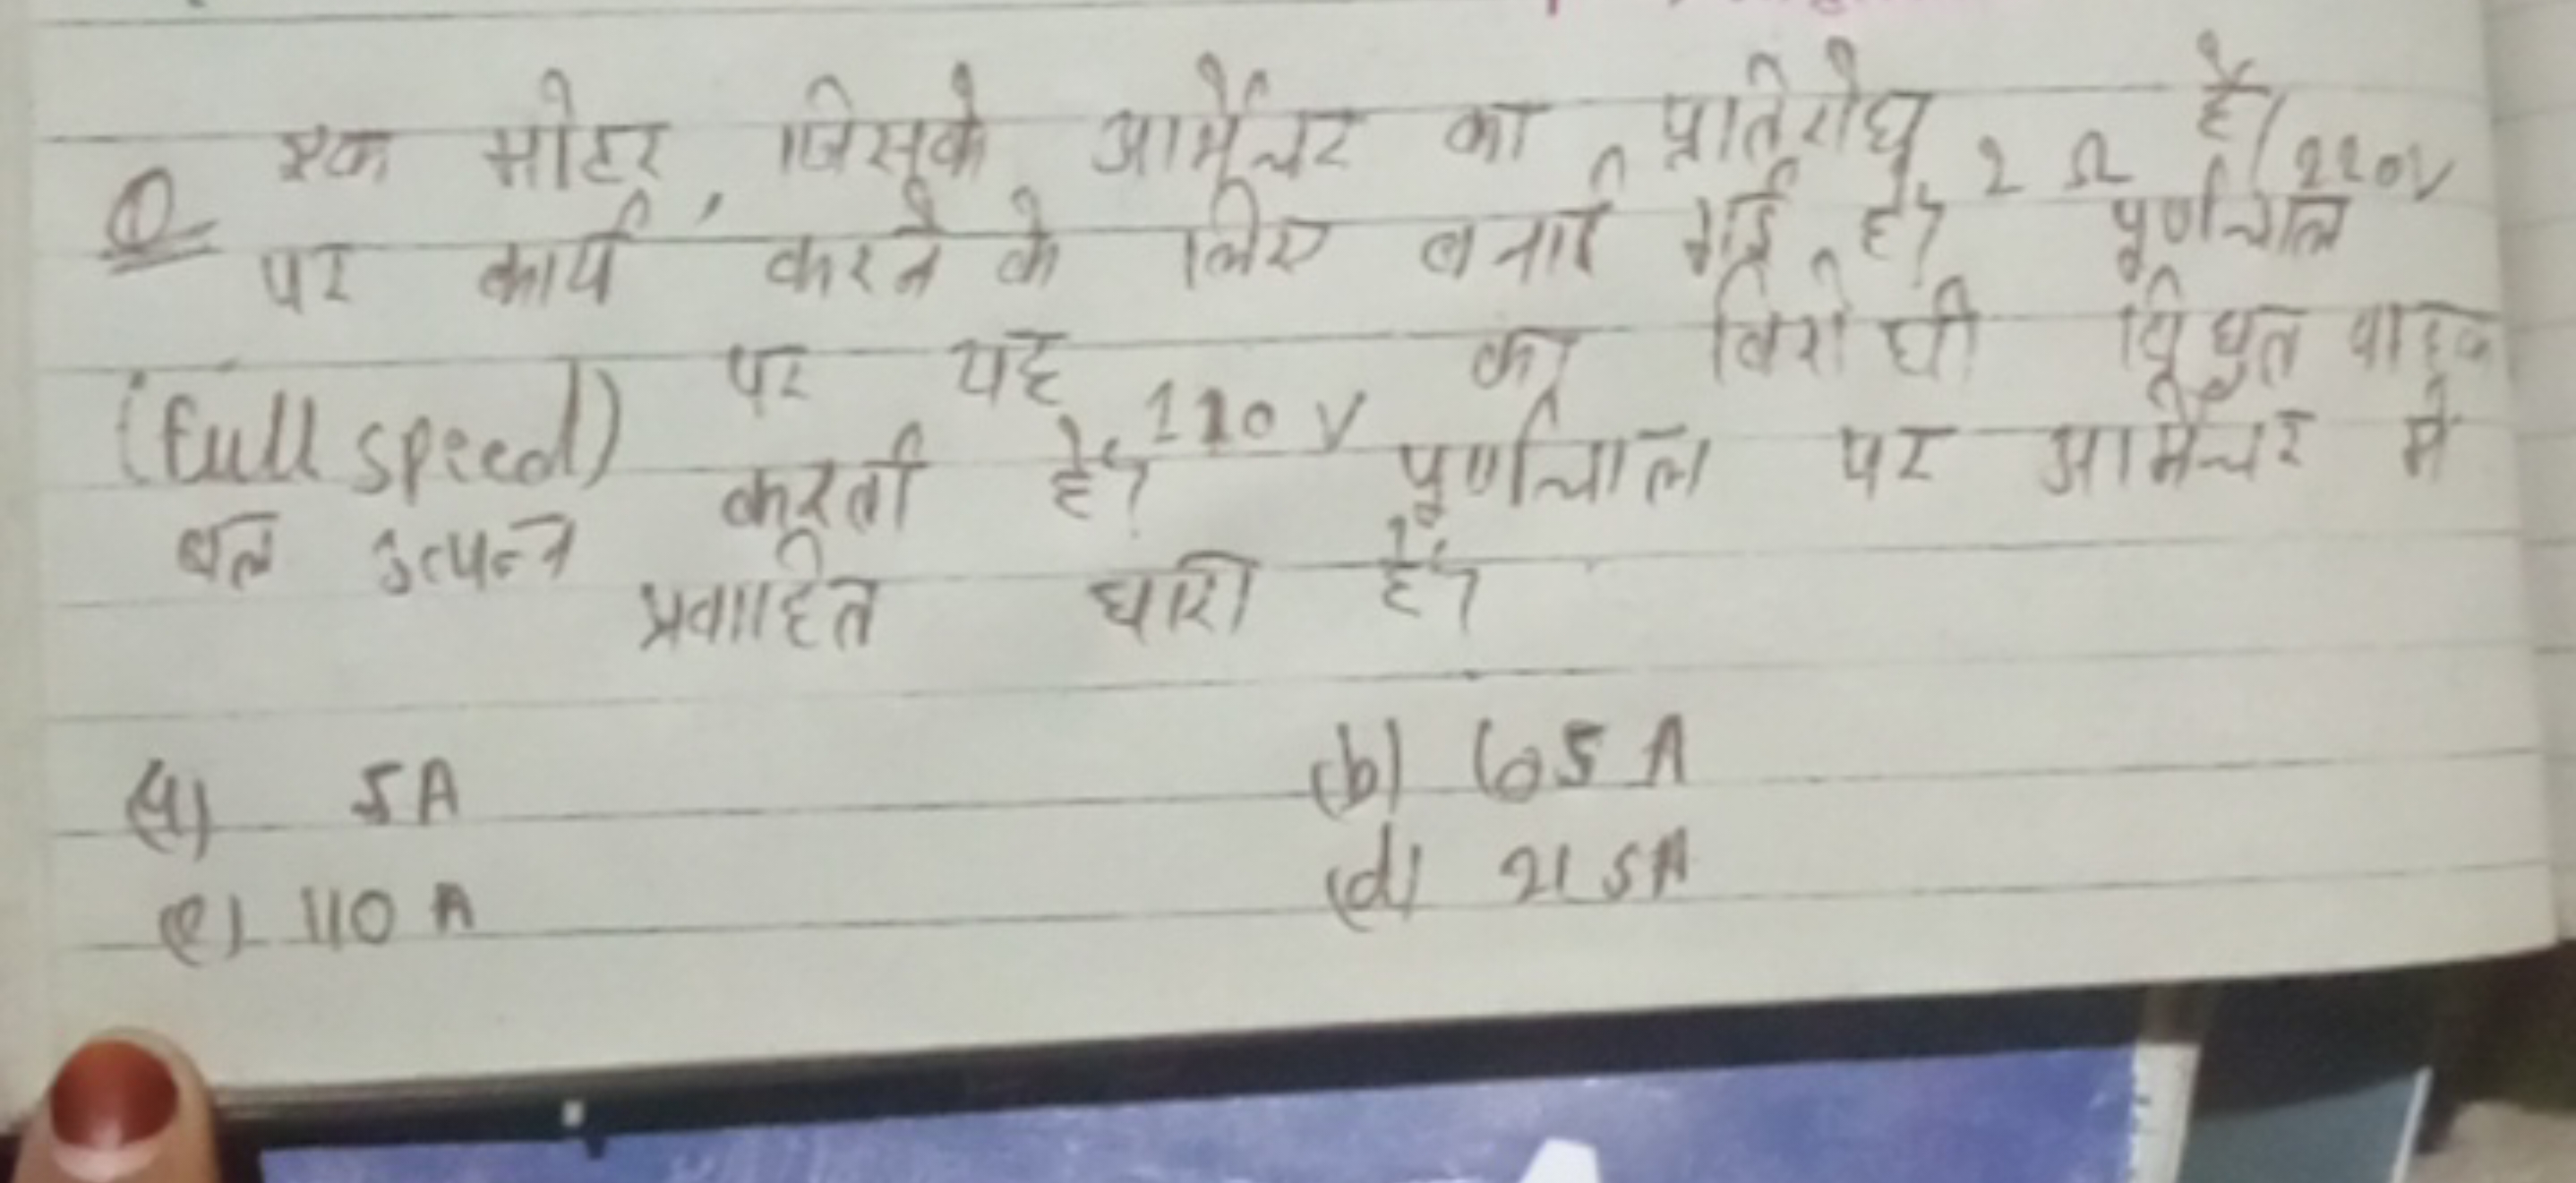 Q एक मोटर, जिसके आर्मेचर का प्रतिरोध 2 Ω है। 220V
पर कार्य करने के लिए बनाई गई है। पूर्णचाल
(full speed) पर यह 110 V का विरोधी विधुत वाहक
बल उत्पन्न करती है। पूर्णचाल पर आर्मेचर में
प्रवाहित धारा है।
(a) 5A (b) 105 A
(c) 110 A (d) 215A